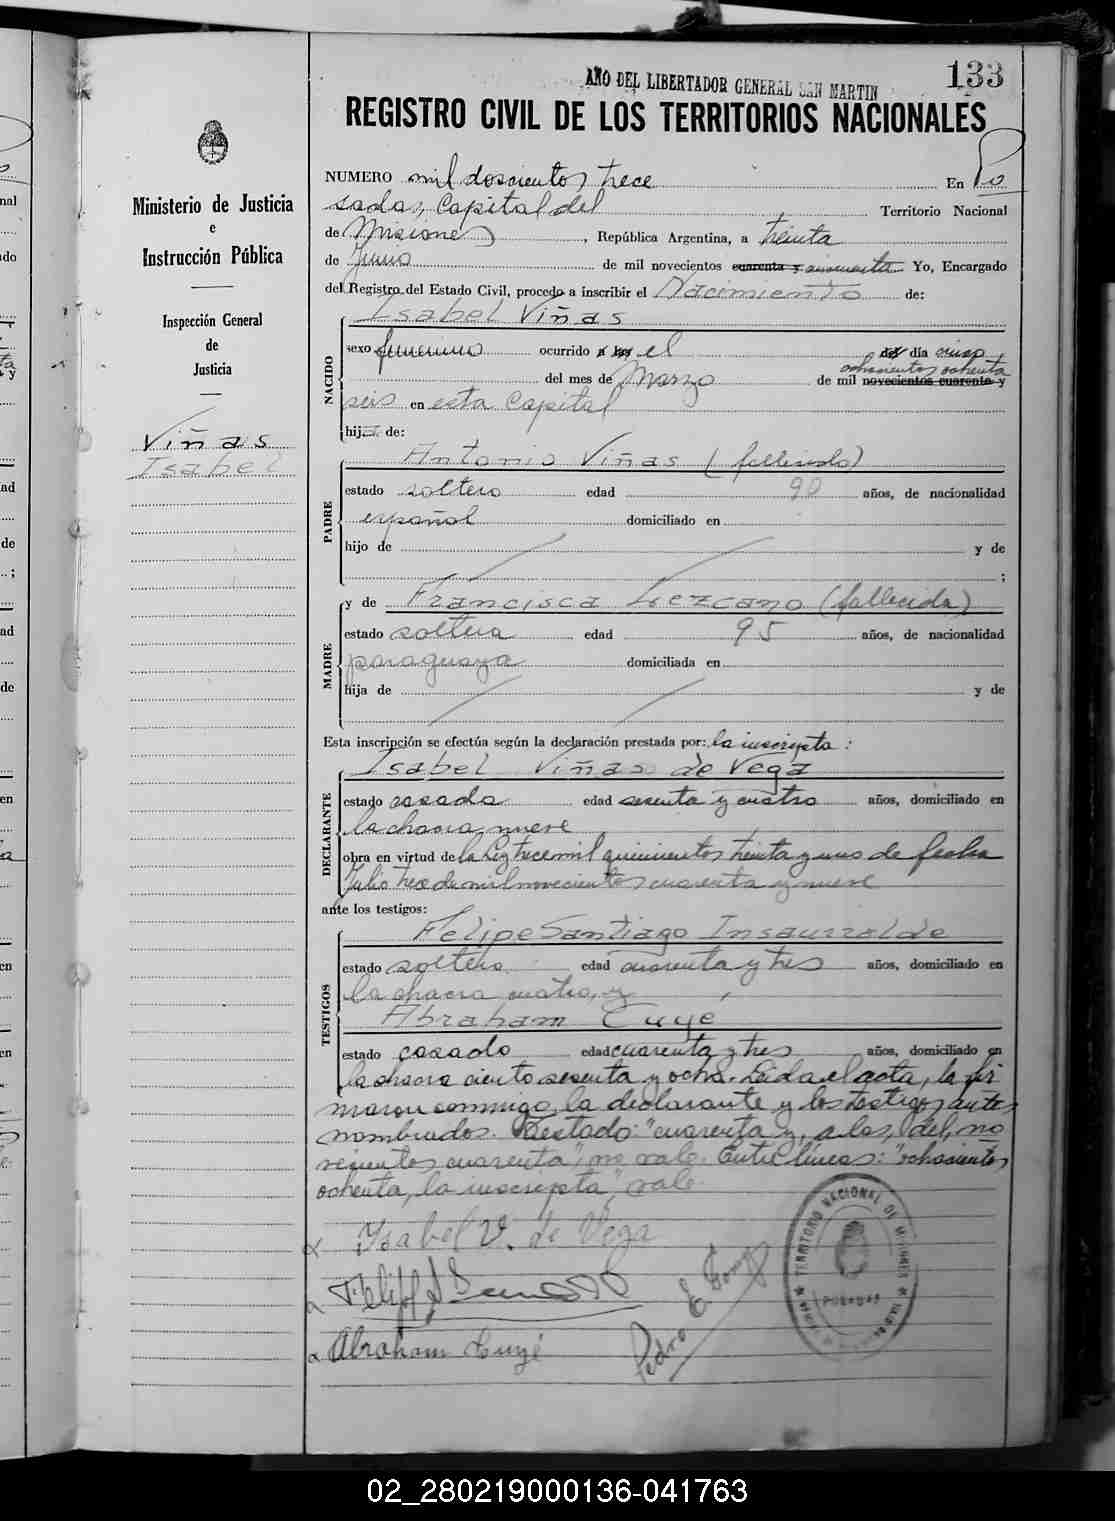 133
AÑO DEL LIBERTADOR GENERAL SAN MARTIN
REGISTRO CIVIL DE LOS TERRITORIOS NACIONALES
Ministerio de Justicia
e
Instrucción Pública
Inspección General
de
Justicia
Viñas
Isabel
NUMERO mil doscientos trece En Po
sadas, Capital del Territorio Nacional
de Misiones, República Argentina, a treinta
de Junio de mil novecientos cuarenta y cincuenta Yo, Encargado
del Registro del Estado Civil, procedo a inscribir el Nacimiento de:
NACIDO
Isabel Viñas
sexo femenino ocurrido a las el del día cinco
ochocientos ochenta
del mes de Marzo de mil novecientos cuarenta y
seis en esta Capital
hija de:
PADRE
Antonio Viñas (fallecido)
estado soltero edad 90 años, de nacionalidad
español domiciliado en
hijo de y de
;
MADRE
y de Francisca Lezcano (fallecida)
estado soltera edad 95 años, de nacionalidad
paraguaya domiciliada en
hija de y de
Esta inscripción se efectúa según la declaración prestada por: la inscripta:
DECLARANTE
Isabel Viñas de Vega
estado casada edad sesenta y cuatro años, domiciliado en
la chacra nueve
obra en virtud de la Ley trece mil quinientos treinta y uno de fecha
Julio trece de mil novecientos cuarenta y nueve
ante los testigos:
TESTIGOS
Felipe Santiago Insaurralde
estado soltero edad cuarenta y tres años, domiciliado en
la chacra cuatro, y
Abraham Cuyé
estado casado edad cuarenta y tres años, domiciliado en
la chacra ciento sesenta y ocho. Leida el acta, la fir
maron conmigo, la declarante y los testigos antes
nombrados. Testado: "cuarenta y, a las, del, no
vecientos cuarenta", no vale. Entre líneas: "ochocientos
ochenta, la inscripta", vale.
Isabel V. de Vega
Abraham Cuyé
Pedro E
TERRITORIO NACIONAL DE MISIONES
POSADAS
02_280219000136-041763